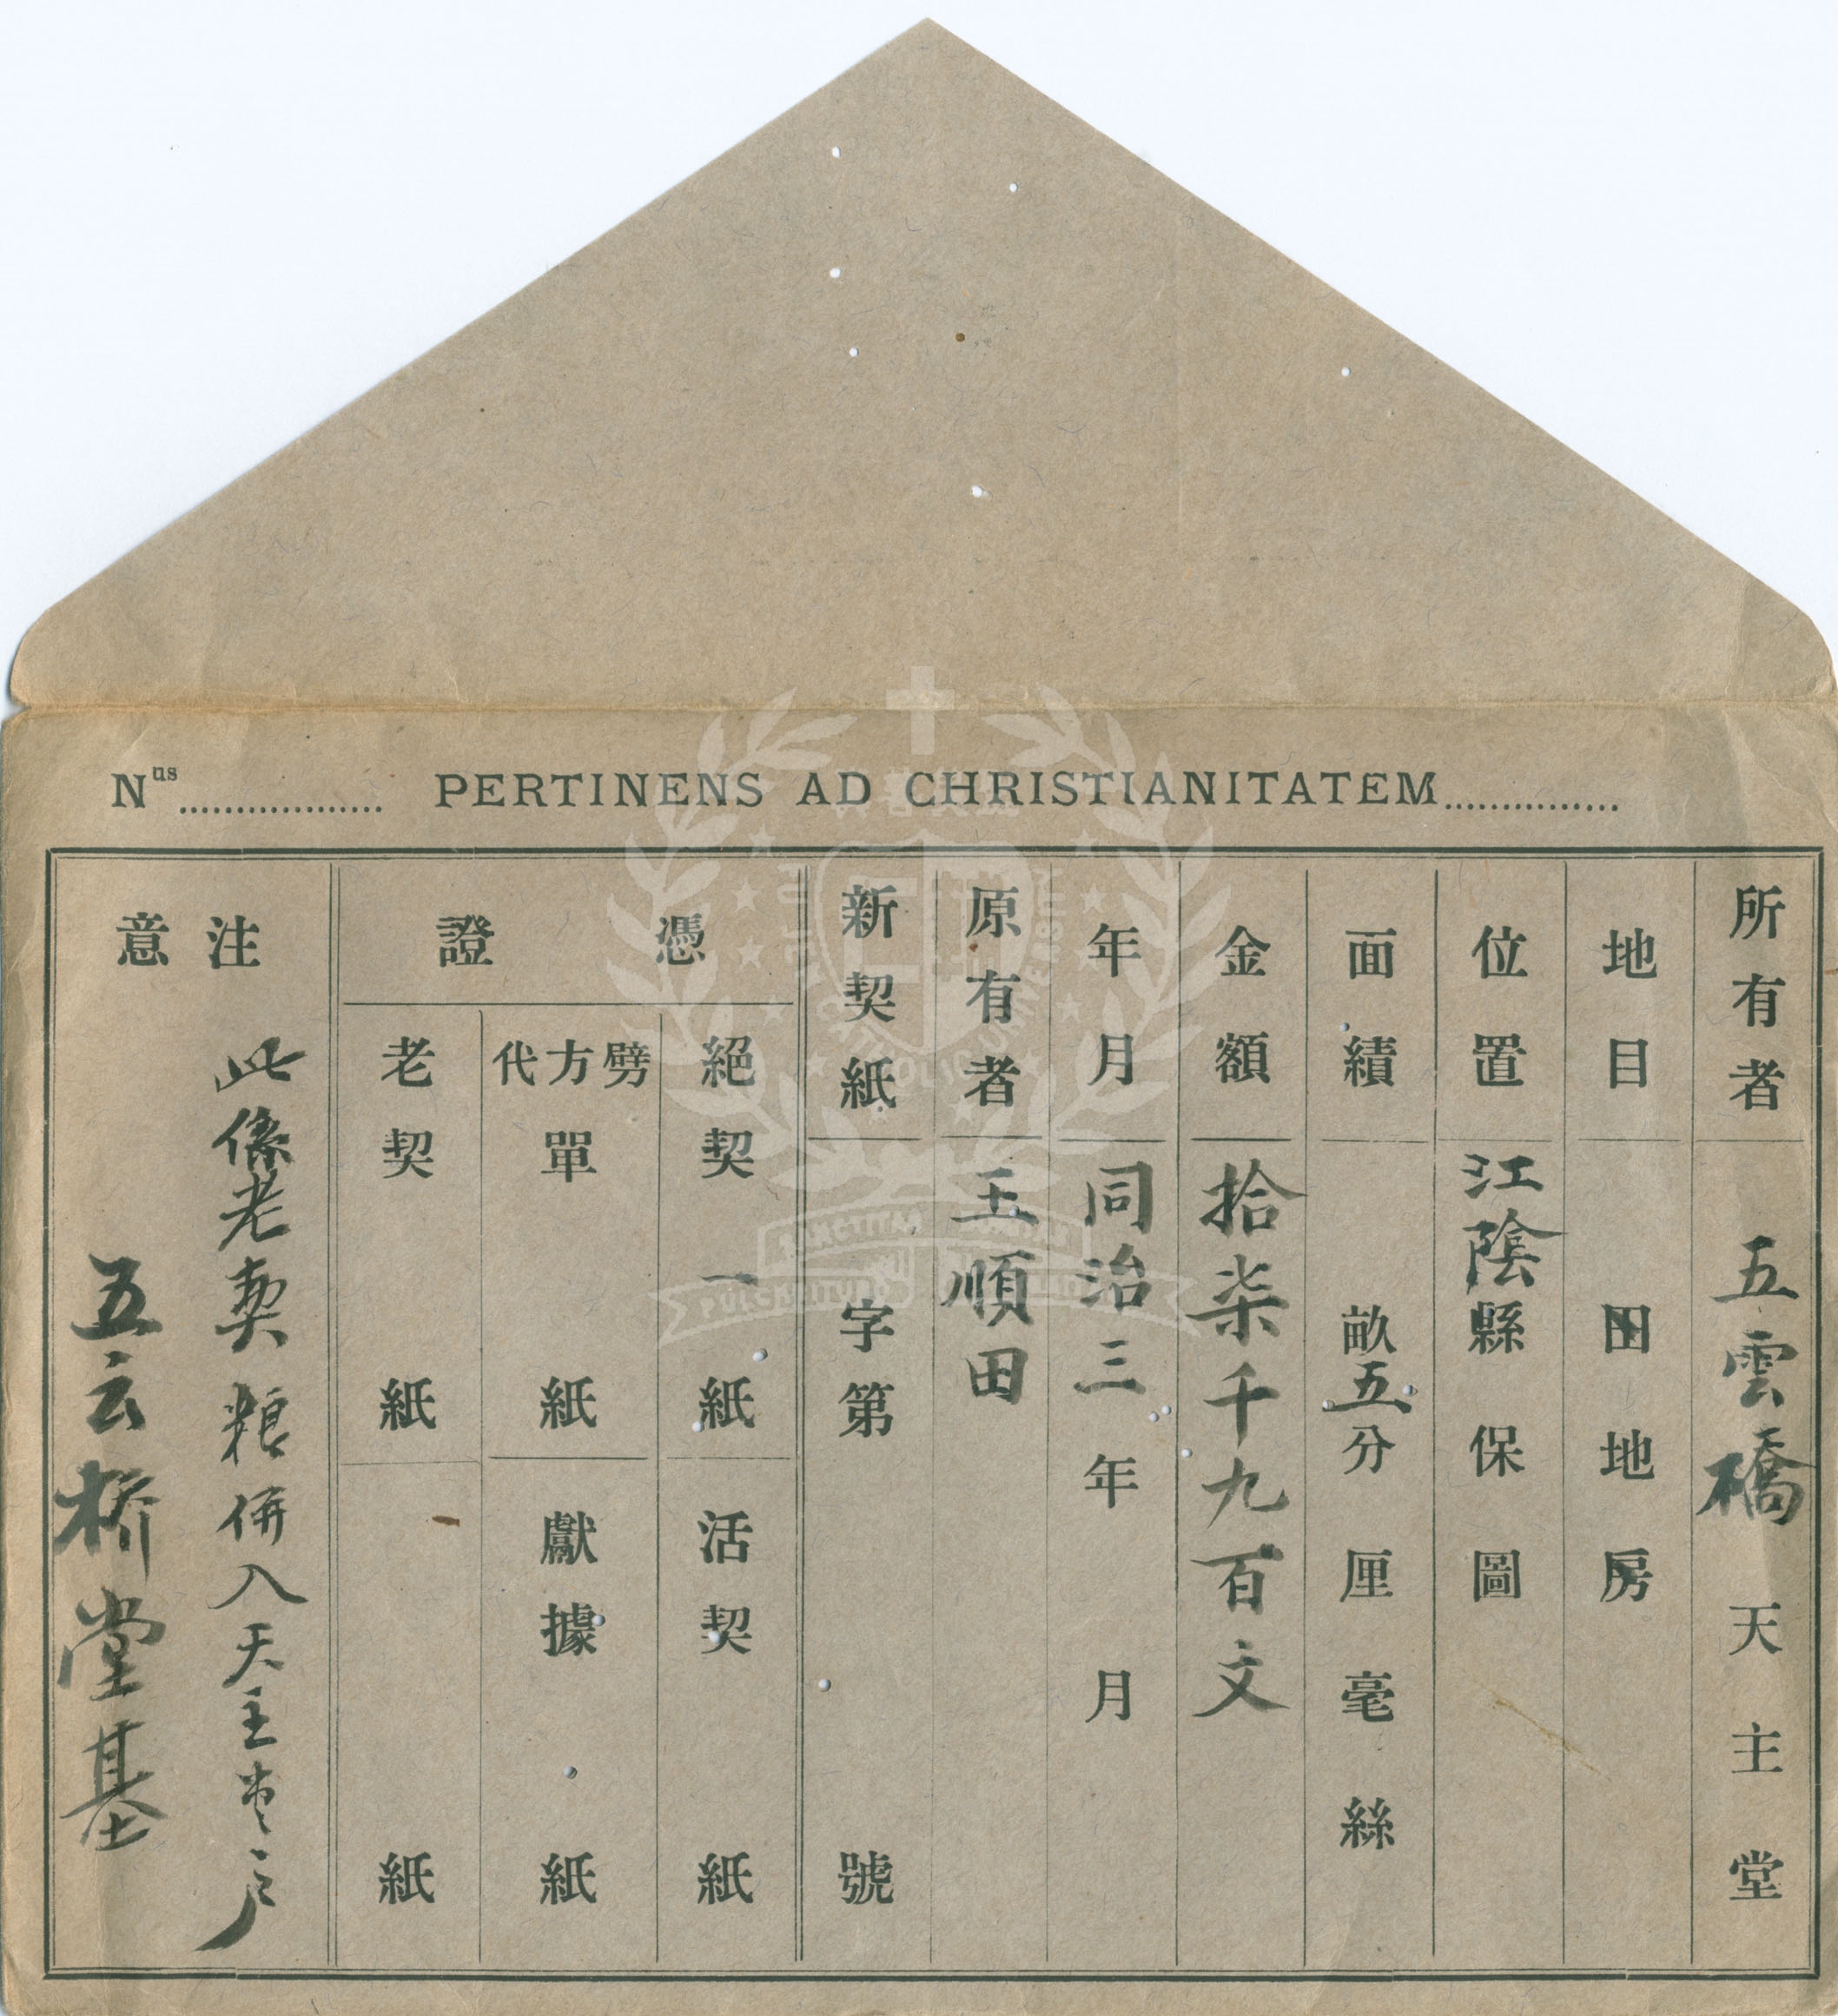 Nus.................. PERTINENS AD CHRISTIANITATEM...............
所有者 五雲橋天主堂
地目 田地房
位置 江陰縣保圖
面績 畝五分厘毫絲
金額 拾柒千九百文
年月 同治三年月
原有者 王順田
新契紙 字第號
憑證
絕契 一紙
活契 紙
劈方代單 紙
獻據 紙
老契 紙
紙
注意
此係老契粮併入天主堂戶
五云桥堂基